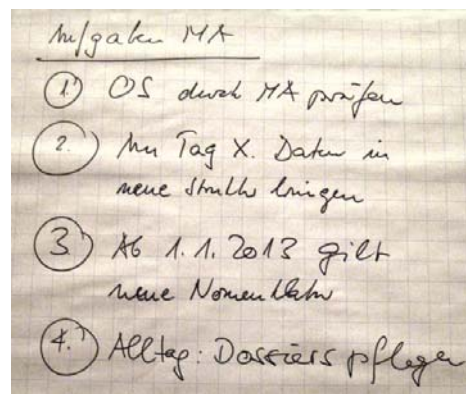 Aufgaben MA
1.) OS durch MA prüfen
2.) Am Tag X. Daten in
neue Struktur bringen
3.) Ab 1.1.2013 gilt
neue Nomenklatur
4.) Alltag: Dossiers pflegen